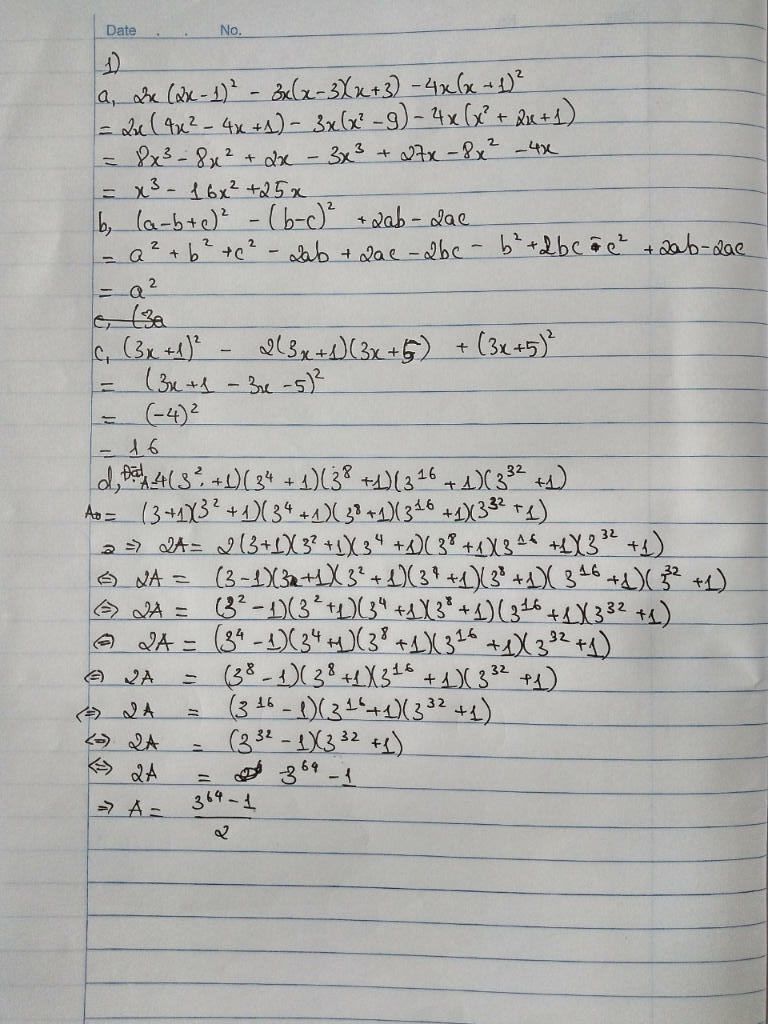 Date . . No.
1)
a, 2x(2x-1)² - 3x(x-3)(x+3) - 4x(x+1)²
= 2x(4x² - 4x +1) - 3x(x² - 9) - 4x(x² + 2x+1)
= 8x³ - 8x² + 2x - 3x³ + 27x - 8x² - 4x
= x³ - 16x² +25x
b, (a-b+c)² - (b-c)² +2ab - 2ac
= a² + b² +c² - 2ab + 2ac - 2bc - b² + 2bc - c² + 2ab - 2ac
= a²
c, (3a
c, (3x+1)² - 2(3x+1)(3x+5) + (3x+5)²
= (3x+1 - 3x -5)²
= (-4)²
= 16
d, A=4(3² +1)(3⁴ +1)(3⁸ +1)(3¹⁶ +1)(3³² +1)
= (3+1)(3² +1)(3⁴ +1)(3⁸+1)(3¹⁶ +1)(3³² +1)
=> 2A = 2(3+1)(3²+1)(3⁴ +1)(3⁸ +1)(3¹⁶ +1)(3³² +1)
<=> 2A = (3-1)(3+1)(3²+1)(3⁴+1)(3⁸+1)(3¹⁶ +1)(3³² +1)
<=> 2A = (3² -1)(3²+1)(3⁴+1)(3⁸+1)(3¹⁶+1)(3³² +1)
<=> 2A = (3⁴ -1)(3⁴+1)(3⁸+1)(3¹⁶ +1)(3³² +1)
<=> 2A = (3⁸ -1)(3⁸+1)(3¹⁶ +1)(3³² +1)
<=> 2A = (3¹⁶ -1)(3¹⁶+1)(3³² +1)
<=> 2A = (3³² -1)(3³² +1)
<=> 2A = 3⁶⁴ -1
=> A = 3⁶⁴ -1
2